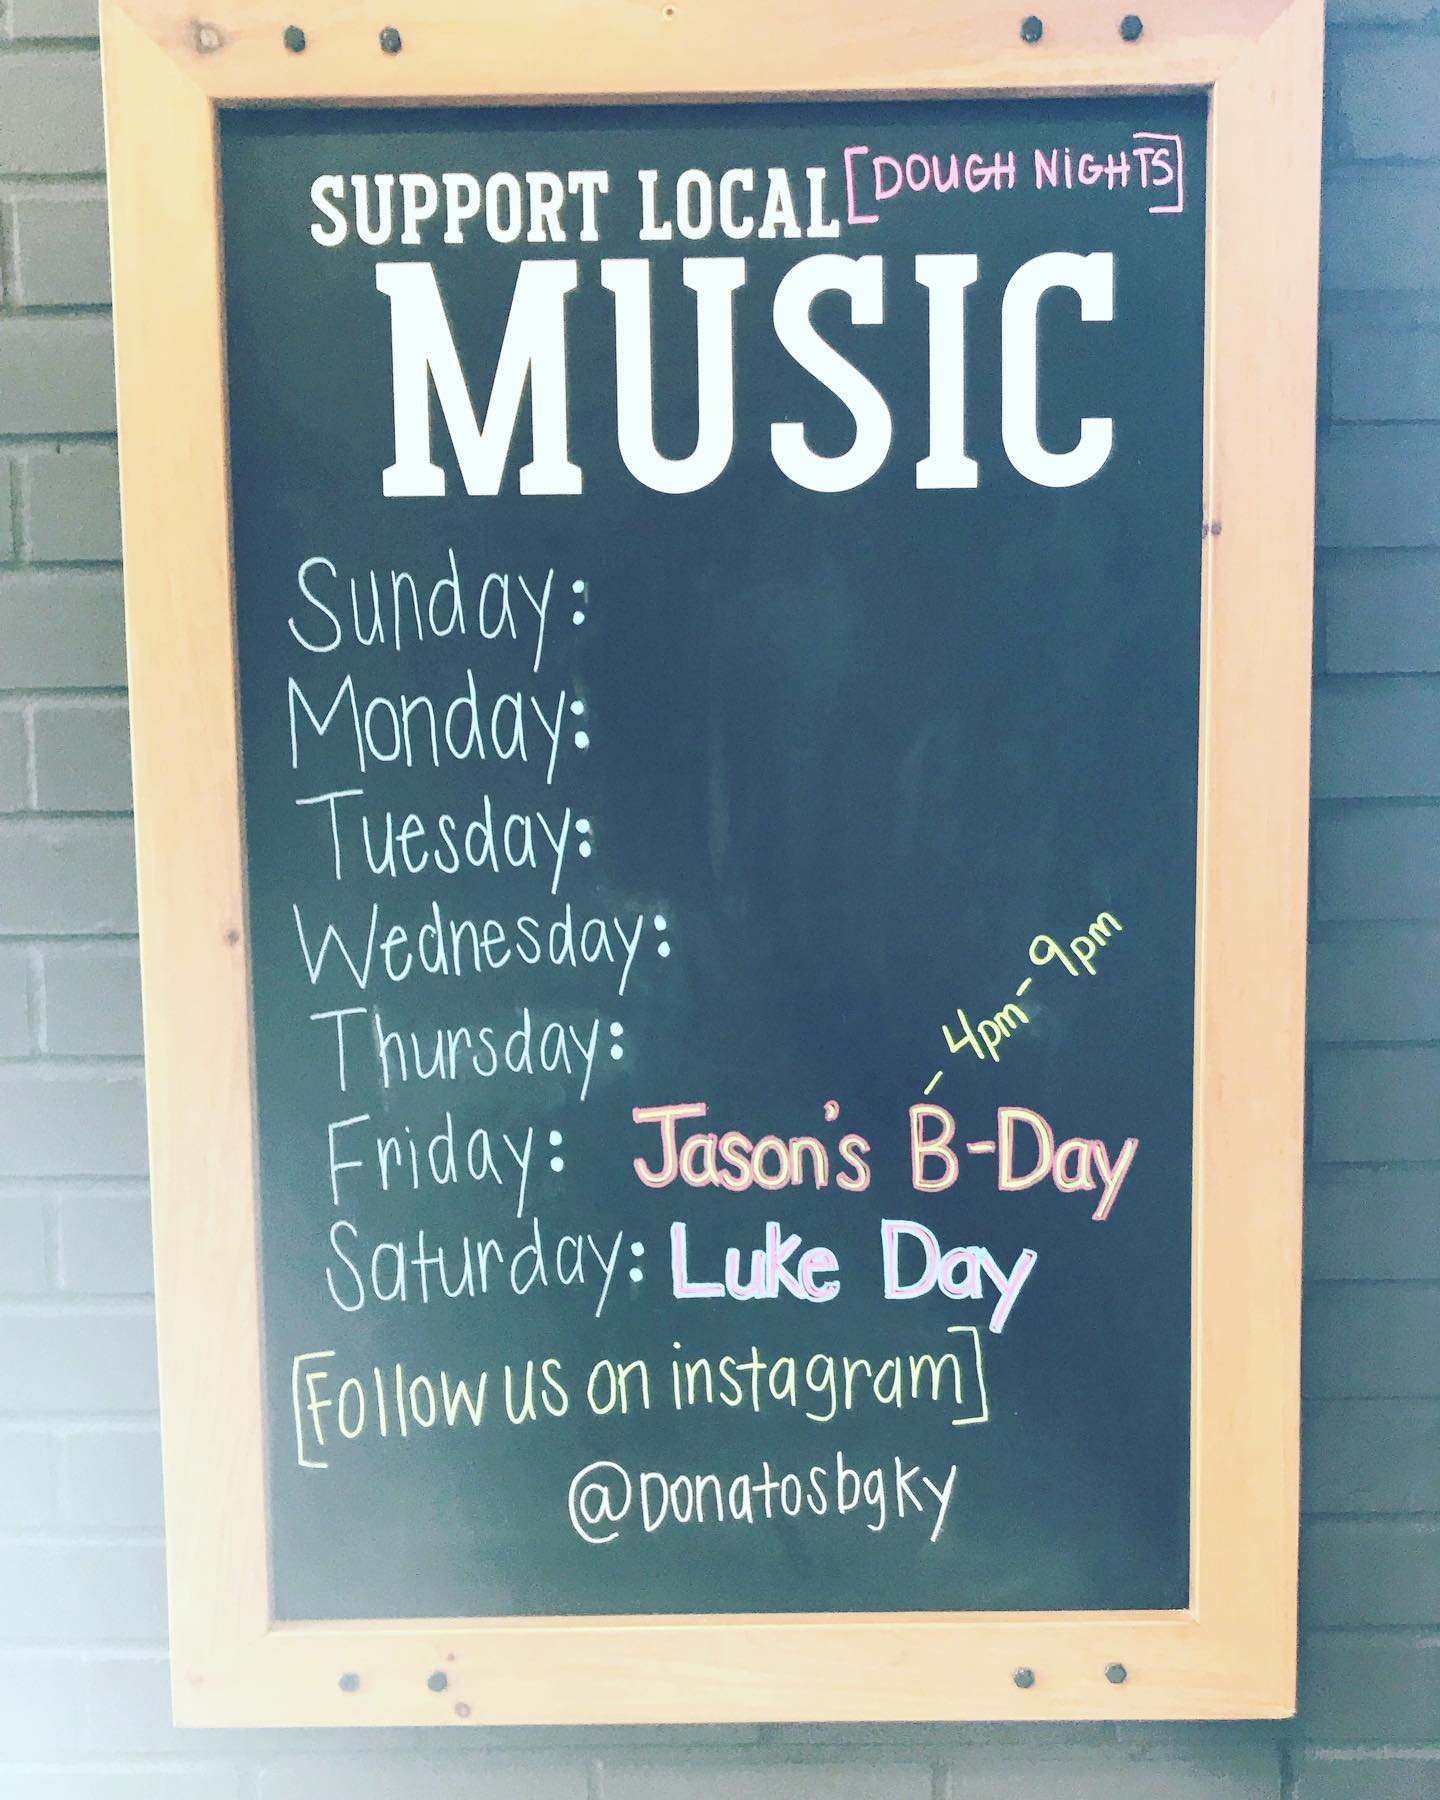 SUPPORT LOCAL [DOUGH NiGHTS]
MUSIC
Sunday:
Monday:
Tuesday:
Wednesday:
Thursday:
- 4pm - 9pm
Friday: Jason's B-Day
Saturday: Luke Day
[Follow us on instagram]
@Donatosbgky